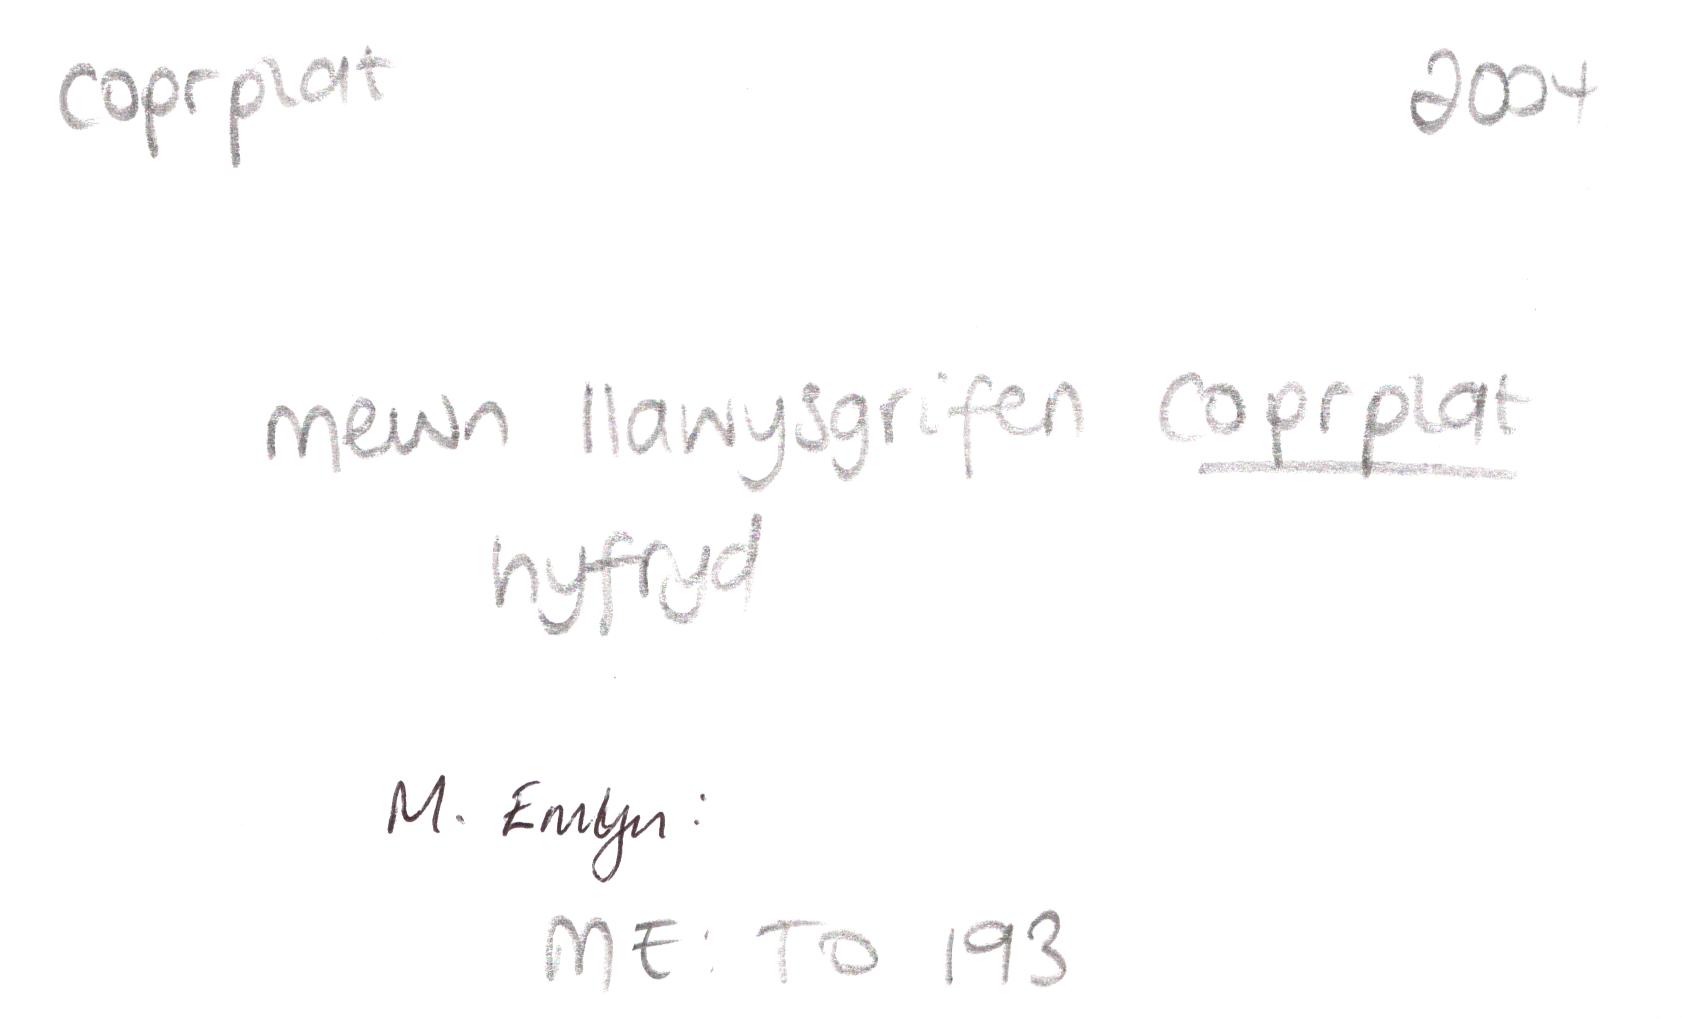 coprplat 2004
mewn llawysgrifen coprplat
hyfryd
M. Emlyn:
ME: TO 193